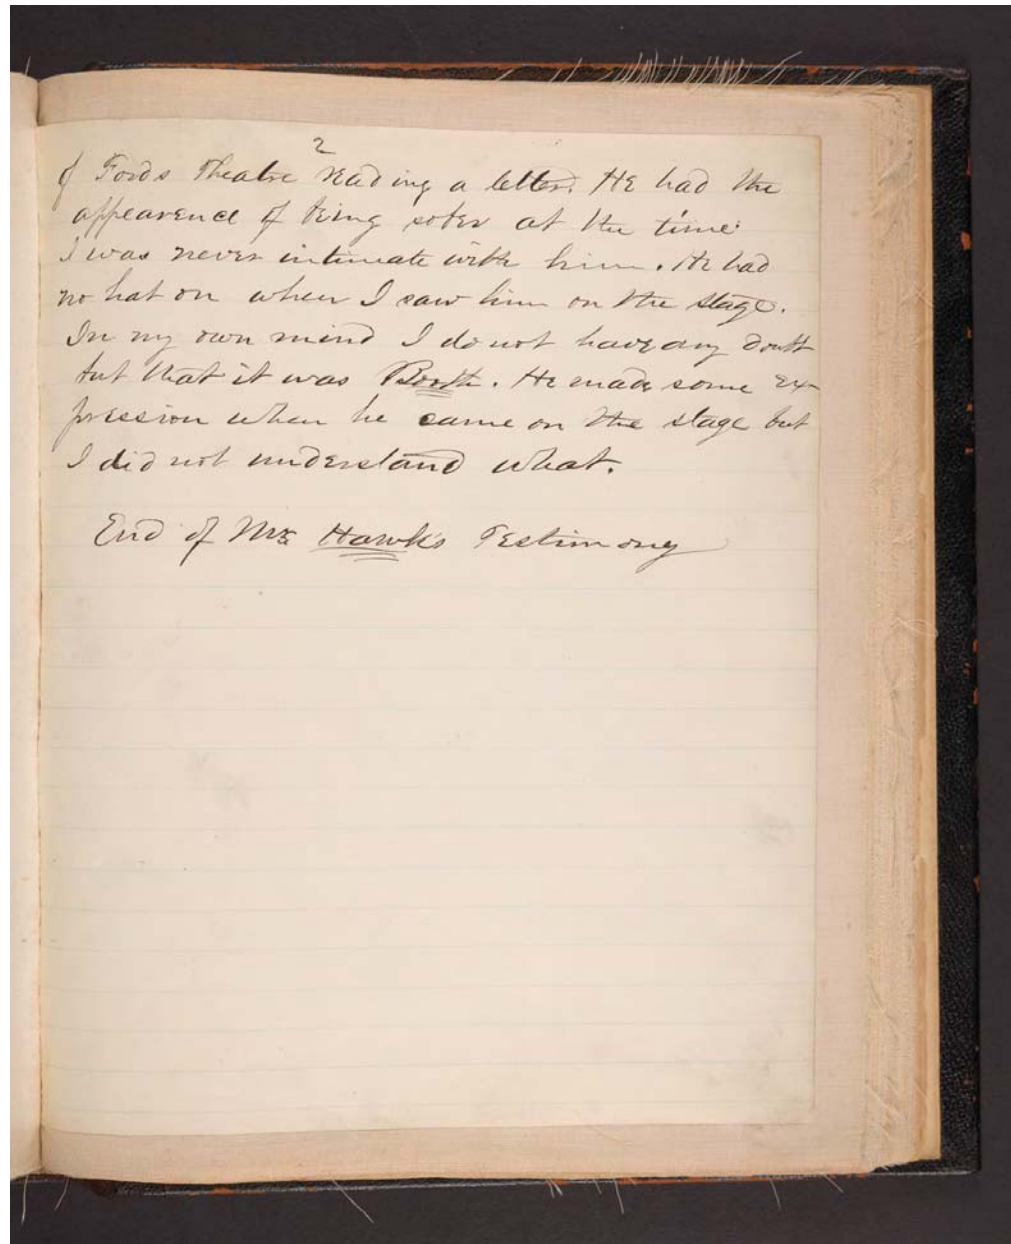 2
of Fords Theatre reading a letter. He had the
appearence of being sober at the time
I was never intimate with him. He had
no hat on when I saw him on the stage.
In my own mind I do not have any doubt
but that it was Booth. He made some ex-
pression when he came on the stage but
I did not understand what.
End of Mr. Hawk's Testimony